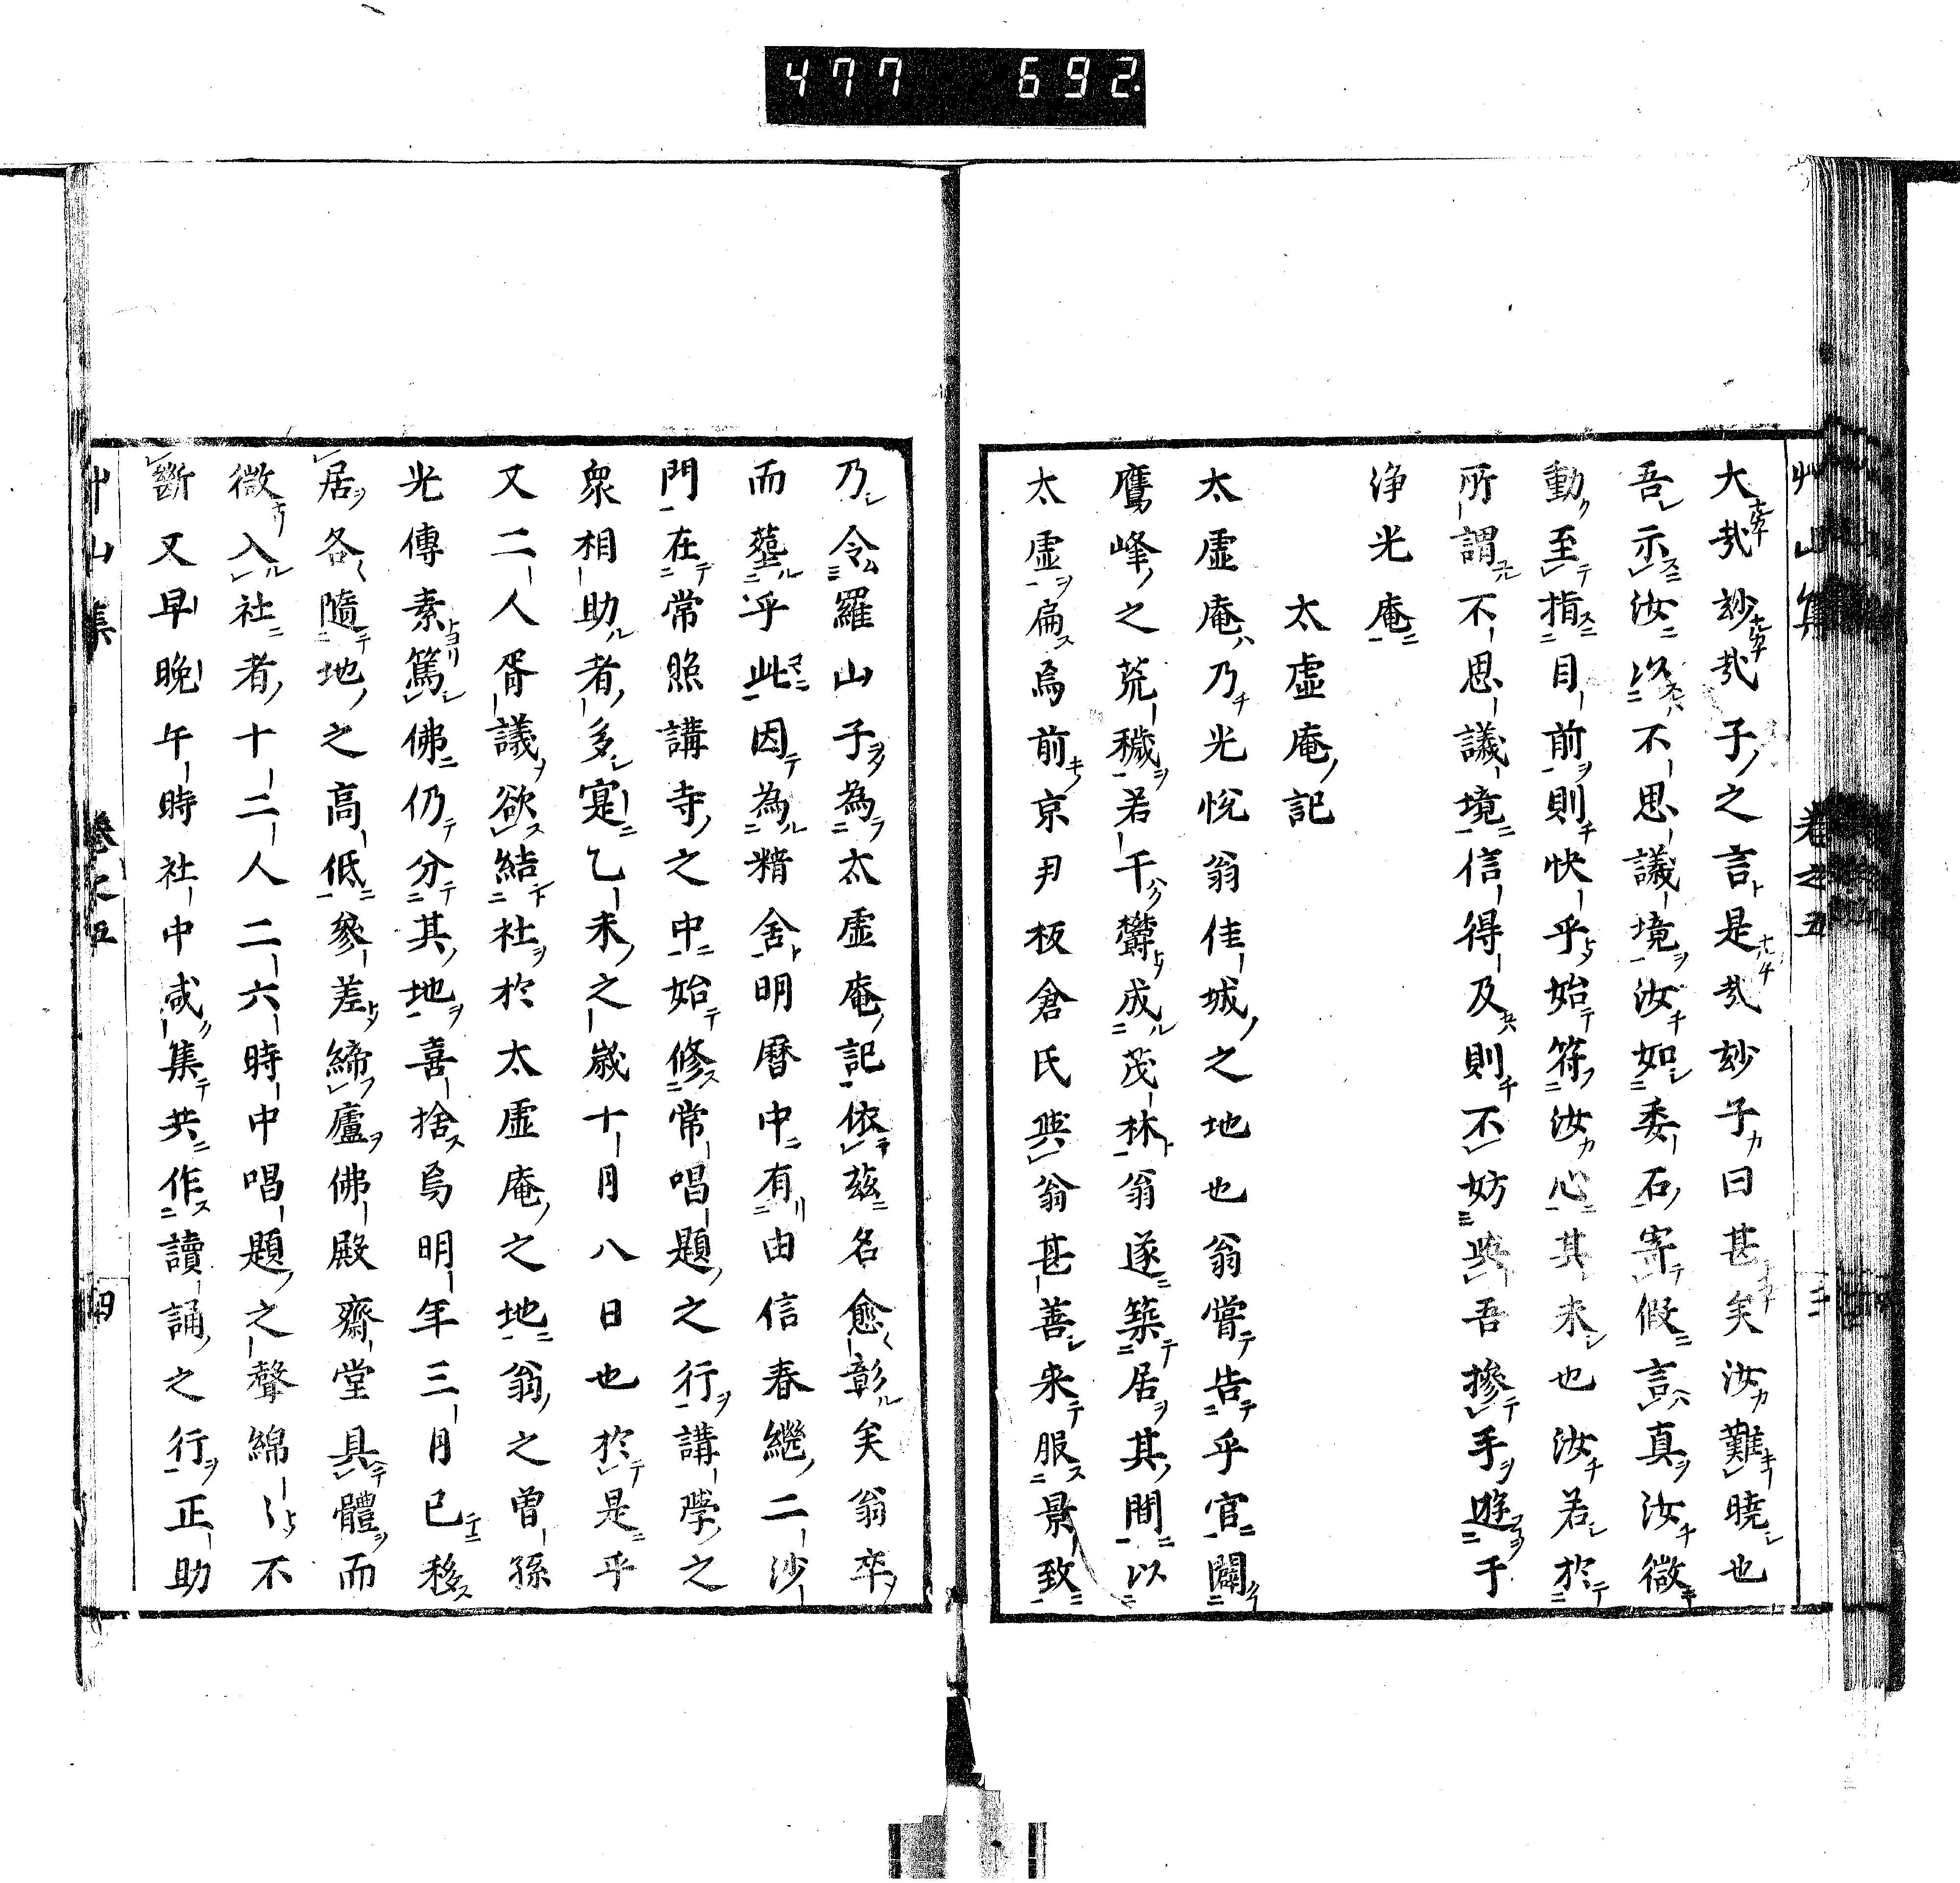 477 692
艸山集 卷之五 三
大哉玅哉子之言是哉玅子曰甚矣汝難曉也
吾示汝以不思議境汝如委石寄假言真汝徵
動至指目前則快乎始符汝心其未也汝若於
所謂不思議境信得及則不妨與吾摻手遊于
淨光庵
太虛庵記
太虛庵乃光悅翁佳城之地也翁嘗告乎官闢
鷹峰之荒穢若干欝成茂林翁遂築居其間以
太虛扁焉前京尹板倉氏與翁甚善來服景致
乃令羅山子為太虛庵記依茲名愈彰矣翁卒
而塟乎此因為精舍明曆中有由信春繼二沙
門在常照講寺之中始修常唱題之行講學之
衆相助者多寔乙未之歲十月八日也於是乎
又二人胥議欲結社於太虛庵之地翁之曾孫
光傳素篤佛仍分其地喜捨焉明年三月已移
居各隨地之高低參差締廬佛殿齋堂具體而
微入社者十二人二六時中唱題之聲綿〻不
斷又早晚午時社中咸集共作讀誦之行正助
艸山集 卷之五 四